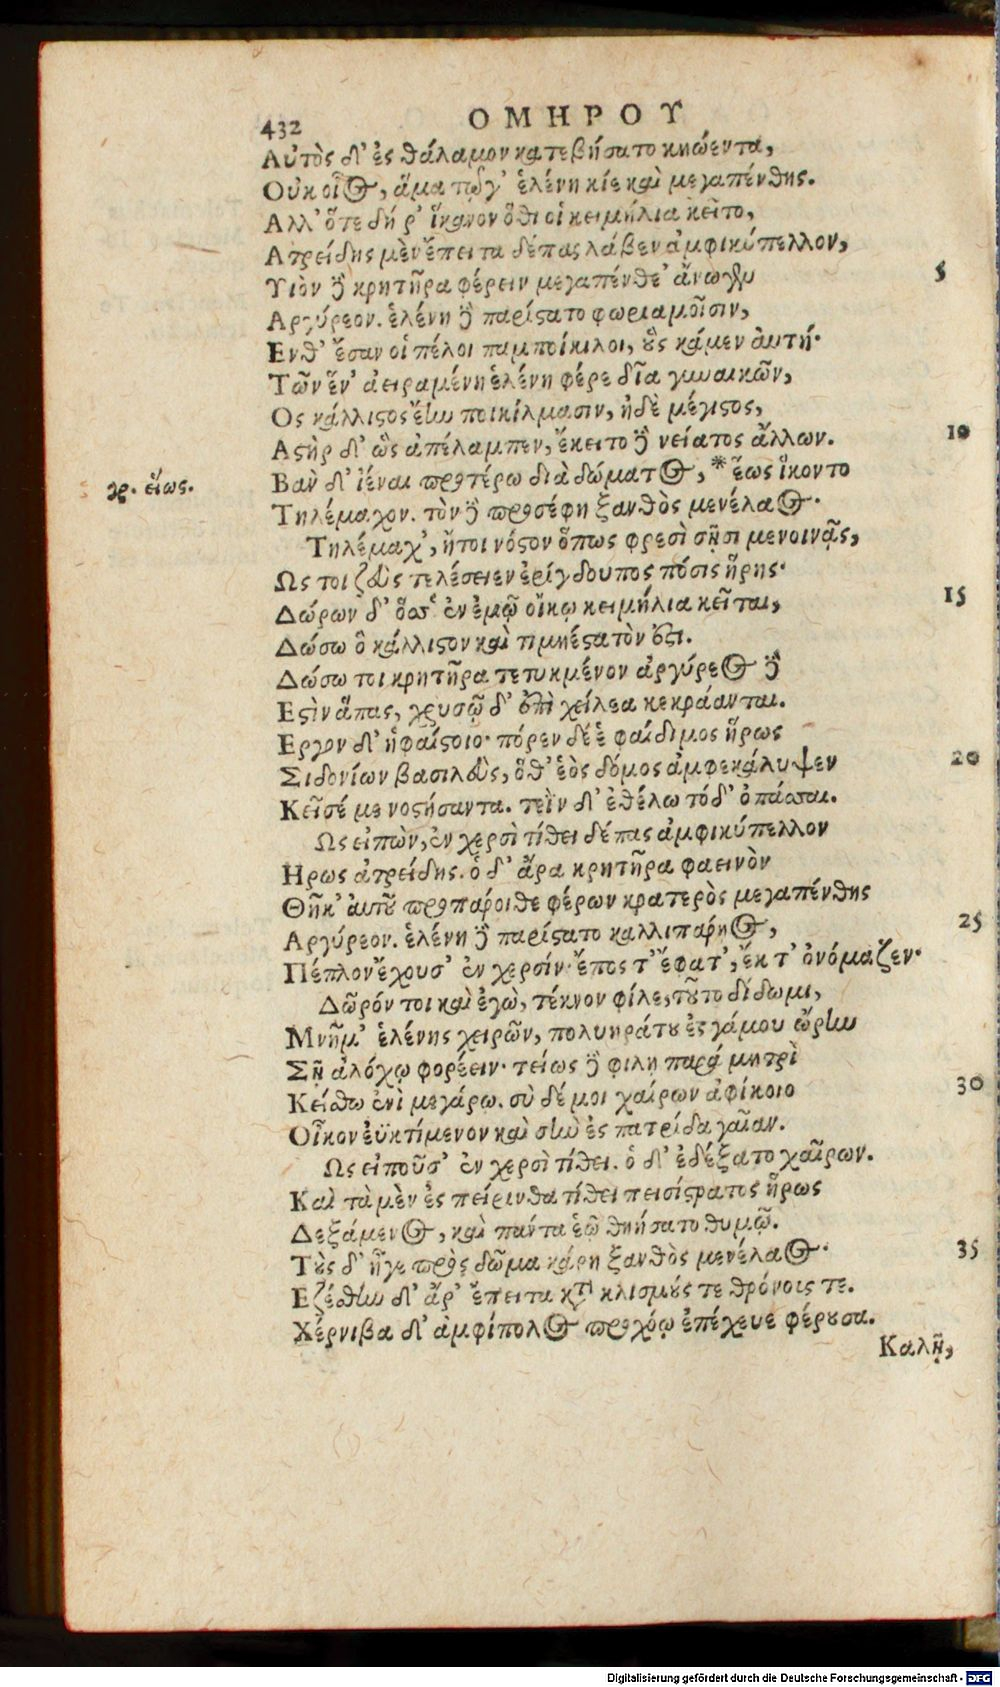 432 ΟΜΗΡΟΥ
Αὐτὸς δ' ἐς θάλαμον κατεβήσατο κηώεντα,
Οὐκ οἶος, ἅμα τῷγ' ἑλένη κίε καὶ μεγαπένθης.
Αλλ' ὅτε δή ῥ' ἵκανον ὅθι οἱ κειμήλια κεῖτο,
Ατρείδης μὲν ἔπειτα δέπας λάβεν ἀμφικύπελλον,
Υιὸν δὲ κρητῆρα φέρειν μεγαπένθε' ἀνωγεν 5
Αργύρεον. ἑλένη δὲ παρίστατο φωριαμοῖσιν,
Ενθ' ἔσαν οἱ πέλοι παμποίκιλοι, οὓς κάμεν αὐτή·
Τῶν ἕν' ἀειραμένη ἑλένη φέρε δῖα γυναικῶν,
Ος κάλλιστος ἔην ποικίλμασιν, ἠδὲ μέγιστος,
Αστὴρ δ' ὣς ἀπέλαμπεν, ἔκειτο δὲ νείατος ἄλλων. 10
Βαν δ' ἰέναι προτέρω διὰ δώματος, * ἕως ἵκοντο
γρ. εἵως.
Τηλέμαχον. τὸν δὲ προσέφη ξανθὸς μενέλαος·
Τηλέμαχ', ἤτοι νόστον ὅπως φρεσὶ σῇσι μενοινᾷς,
Ως τοι ζεὺς τελέσειεν ἐρίγδουπος πόσις ἥρης·
Δώρων δ' ὅσσ' ἐν ἐμῷ οἴκῳ κειμήλια κεῖται, 15
Δώσω ὃ κάλλιστον καὶ τιμηέστατόν ἐστι.
Δώσω τοι κρητῆρα τετυκμένον ἀργύρεος δὲ
Εστὶν ἅπας, χρυσῷ δ' ἐπὶ χείλεα κεκράανται.
Εργον δ' ἡφαίστοιο· πόρεν δέ ἑ φαίδιμος ἥρως
Σιδονίων βασιλεὺς, ὅθ' ἑὸς δόμος ἀμφεκάλυψεν 20
Κεῖσέ με νοστήσαντα. τεῒν δ' ἐθέλω τόδ' ὀπάσσαι.
Ως εἰπὼν, ἐν χερσὶ τίθει δέπας ἀμφικύπελλον
Ηρως ἀτρείδης. ὁ δ' ἄρα κρητῆρα φαεινὸν
Θῆκ' αὐτοῦ προπάροιθε φέρων κρατερὸς μεγαπένθης
Αργύρεον. ἑλένη δὲ παρίστατο καλλιπάρῃος, 25
Πέπλον ἔχουσ' ἐν χερσίν· ἔπος τ' ἔφατ', ἔκ τ' ὀνόμαζεν·
Δῶρόν τοι καὶ ἐγὼ, τέκνον φίλε, τοῦτο δίδωμι,
Μνῆμ' ἑλένης χειρῶν, πολυηράτου ἐς γάμου ὥρην
Σῇ ἀλόχῳ φορέειν· τείως δὲ φιλη παρά μητρὶ
Κείσθω ἐνὶ μεγάρω. σὺ δέ μοι χαίρων ἀφίκοιο 30
Οἶκον ἐϋκτίμενον καὶ σὴν ἐς πατρίδα γαῖαν.
Ως εἰποῦσ' ἐν χερσὶ τίθει. ὁ δ' ἐδέξατο χαῖρων.
Καὶ τὰ μὲν ἐς πείρινθα τίθει πεισίστρατος ἥρως
Δεξάμενος, καὶ πάντα ἑῷ θηήσατο θυμῷ.
Τοὺς δ' ἦγε πρὸς δῶμα κάρη ξανθὸς μενέλαος· 35
Εζέσθην δ' ἄρ' ἔπειτα κτ κλισμούς τε θρόνοις τε.
Χέρνιβα δ' ἀμφίπολος προχόῳ ἐπέχευε φέρουσα.
Καλῇ,
Digitalisierung gefördert durch die Deutsche Forschungsgemeinschaft - DFG